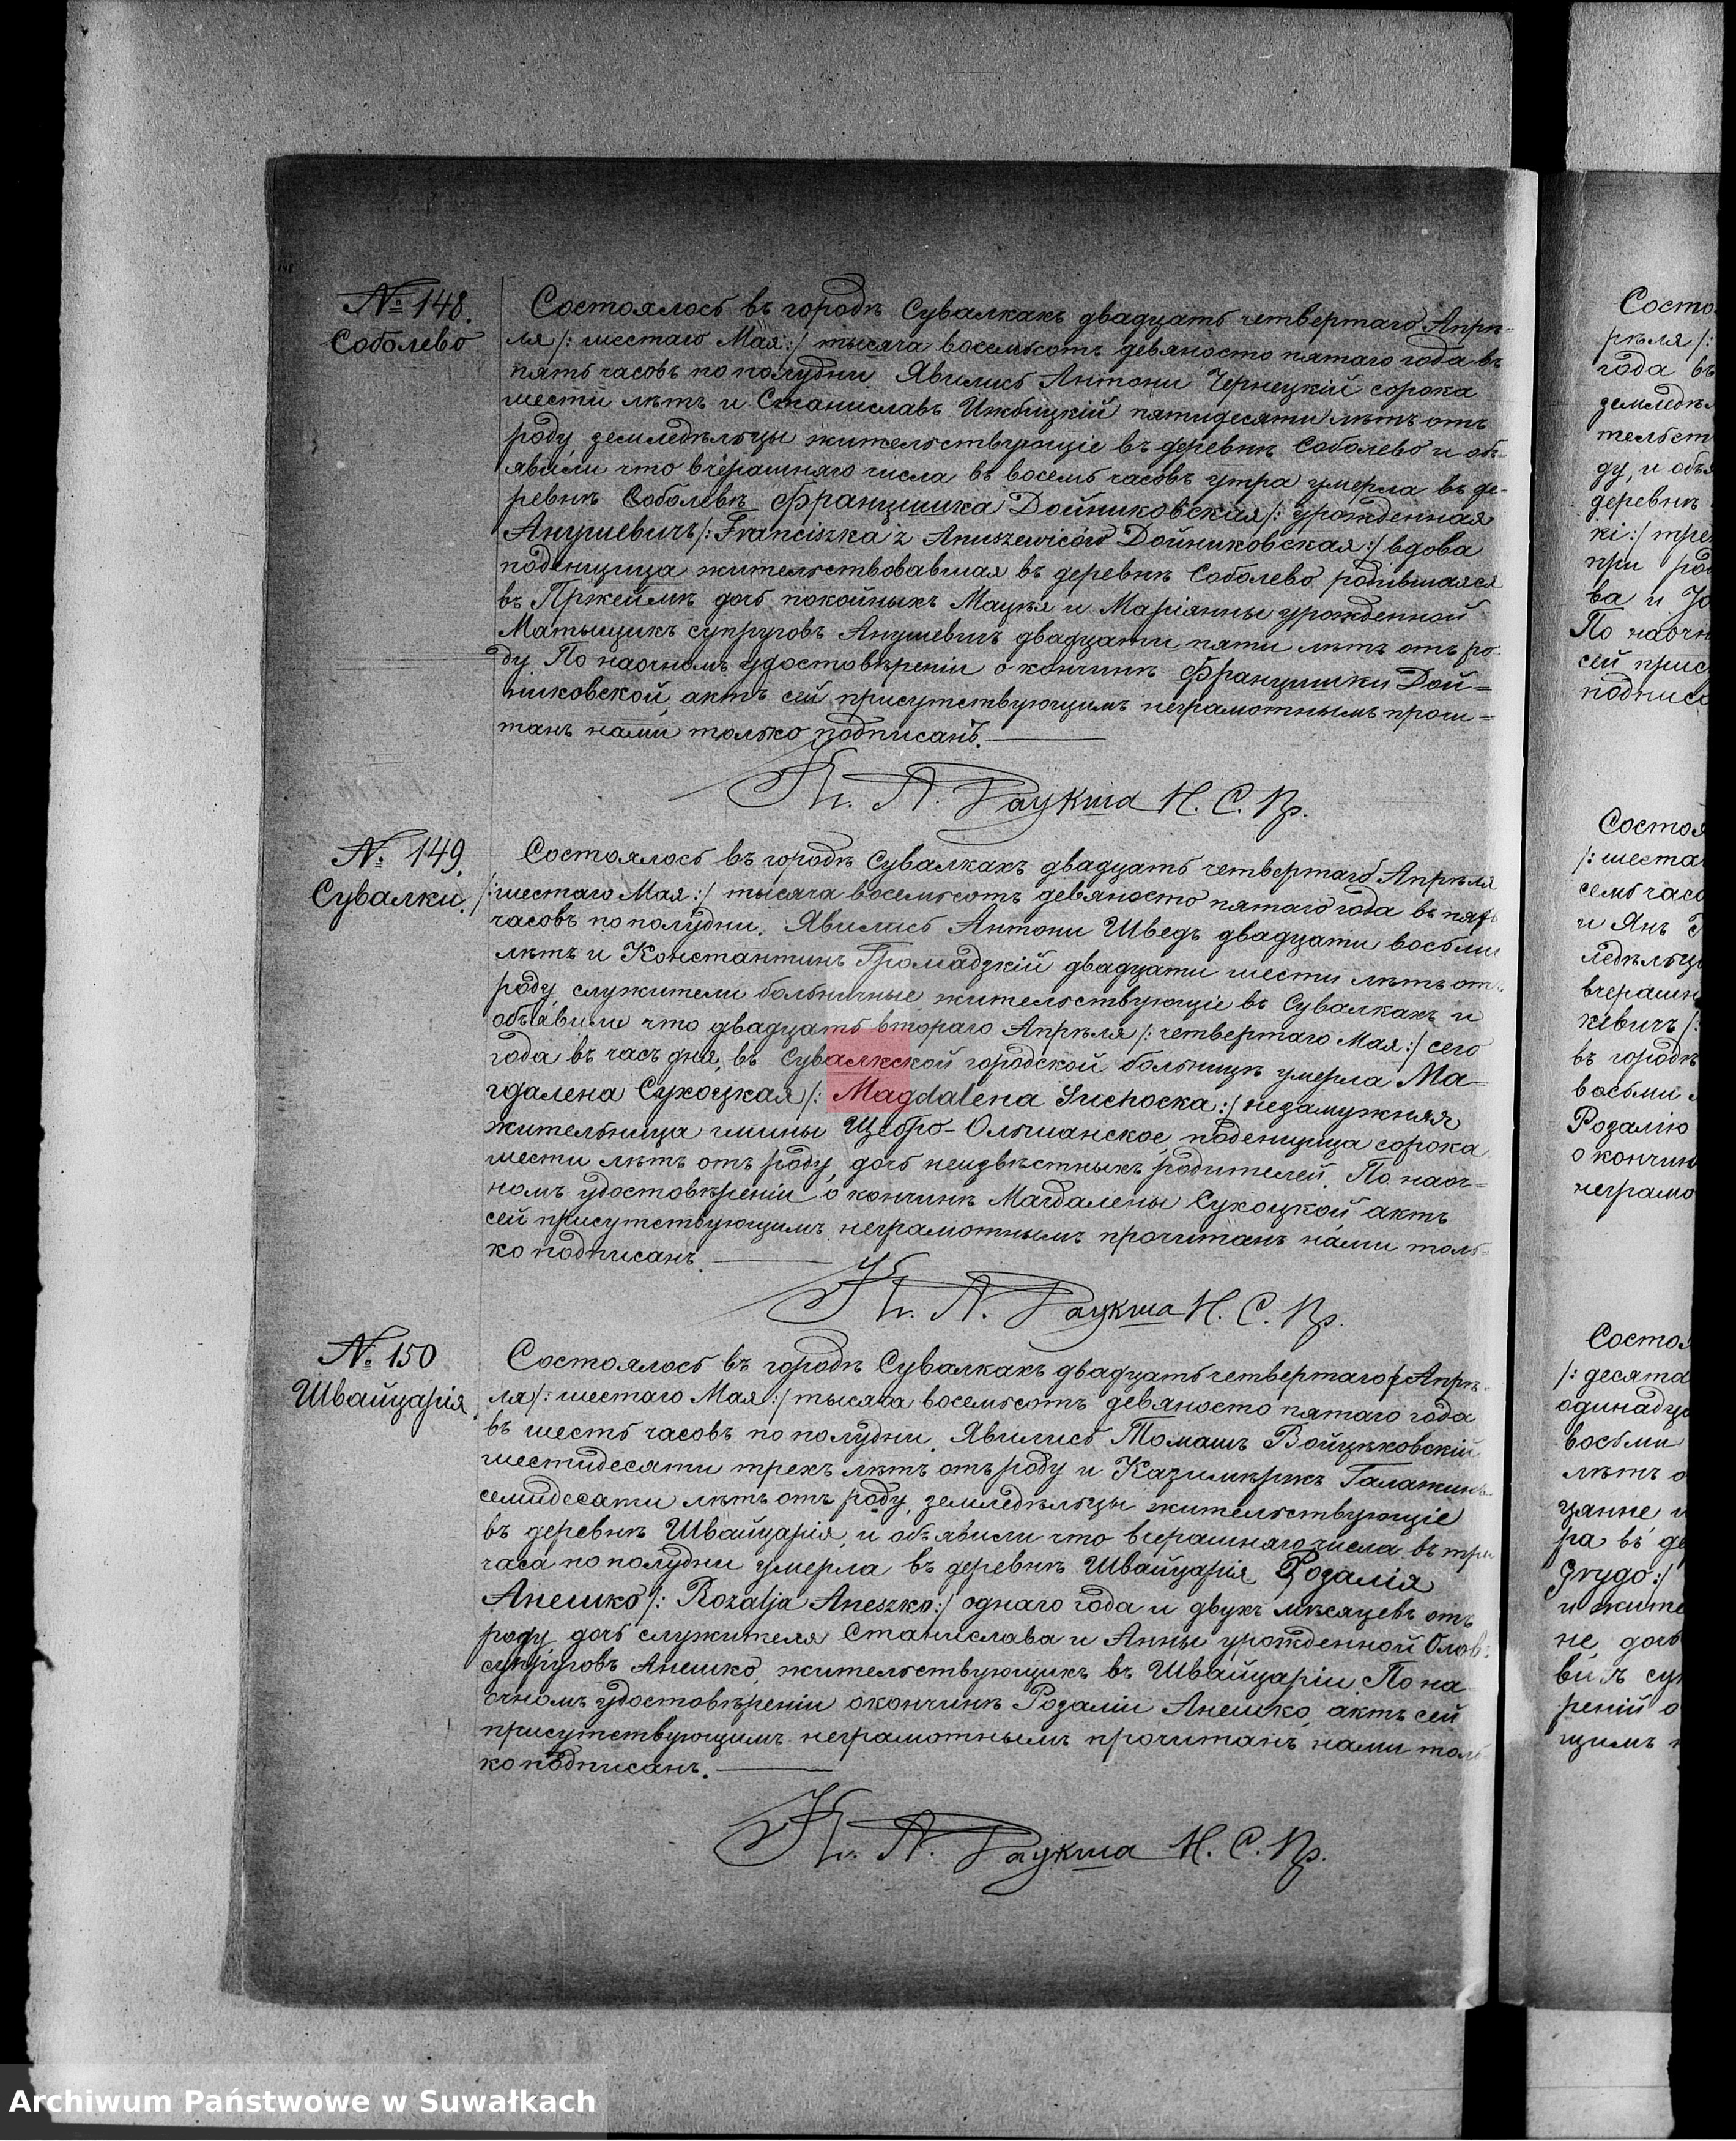 № 148.
Соболево
Состоялось въ городѣ Сувалкахъ двадцать четвертаго Апрѣ-
ля /: шестаго Мая :/ тысяча восемьсотъ девяносто пятаго года въ
пять часовъ по полудни. Явились Антони Чернецкій сорока
шести лѣтъ и Станиславъ Ижбицкій пятидесяти лѣтъ отъ
роду, земледѣльцы жительствующіе въ деревнѣ Соболево и объ-
явили что вчерашняго числа въ восемь часовъ утра умерла въ де-
ревнѣ Соболевѣ Францишка Дойниковская /: урожденная
Анушевичъ /: Franciszka z Anuszewiczów Дойниковская :/ вдова
поденщица жительствовавшая въ деревнѣ Соболево, родившаяся
въ Пржеймѣ дочь покойныхъ Мацѣя и Маріянны урожденной
супруговъ Анушевичъ двадцати пяти лѣтъ отъ ро-
ду. По наочномъ удостовѣреніи о кончинѣ Францишки Дой-
никовской, актъ сей присутствующимъ неграмотнымъ прочи-
танъ нами только подписанъ.
Кс. А. Раукша Н. С. Пр.
№ 149.
Сувалки.
Состоялось въ городѣ Сувалкахъ двадцать четвертаго Апрѣля
/: шестаго Мая :/ тысяча восемьсотъ девяносто пятаго года въ пять
часовъ по полудни. Явились Антони Шведъ двадцати восьми
лѣтъ и Константинъ Громадзкій двадцати шести лѣтъ отъ
роду, служители больничные жительствующіе въ Сувалкахъ и
объявили что двадцать втораго Апрѣля /: четвертаго Мая :/ сего
года въ часъ дня, въ Сувалкской городской больницѣ умерла Ма-
гдалена Сухоцкая /: Magdalena Suchocka :/ незамужняя
жительница гмины Щебро-Ольшанское, поденщица сорока
шести лѣтъ отъ роду, дочь неизвѣстныхъ родителей. По наоч-
номъ удостовѣреніи о кончинѣ Магдалены Сухоцкой актъ
сей присутствующимъ неграмотнымъ прочитанъ нами толь-
ко подписанъ.
Кс. А. Раукша Н. С. Пр.
№ 150
Швайцарія
Состоялось въ городѣ Сувалкахъ двадцать четвертаго Апрѣ-
ля /: шестаго Мая :/ тысяча восемьсотъ девяносто пятаго года
въ шесть часовъ по полудни. Явились Томашъ Войцѣховскій
шестидесяти трехъ лѣтъ отъ роду и
семидесяти лѣтъ отъ роду, земледѣльцы жительствующіе
въ деревнѣ Швайцарія, и объявили что вчерашняго числа въ три
часа по полудни умерла въ деревнѣ Швайцарія Розалія
Анешко /: Rozalja Aneszko :/ одного года и двухъ мѣсяцевъ отъ
роду, дочь служителя Станислава и Анны урожденной
супруговъ Анешко, жительствующихъ въ Швайцаріи. По на-
очномъ удостовѣреніи о кончинѣ Розаліи Анешко, актъ сей
присутствующимъ неграмотнымъ прочитанъ нами толь
ко подписанъ.
Кс. А. Раукша Н. С. Пр.
Archiwum Państwowe w Suwałkach